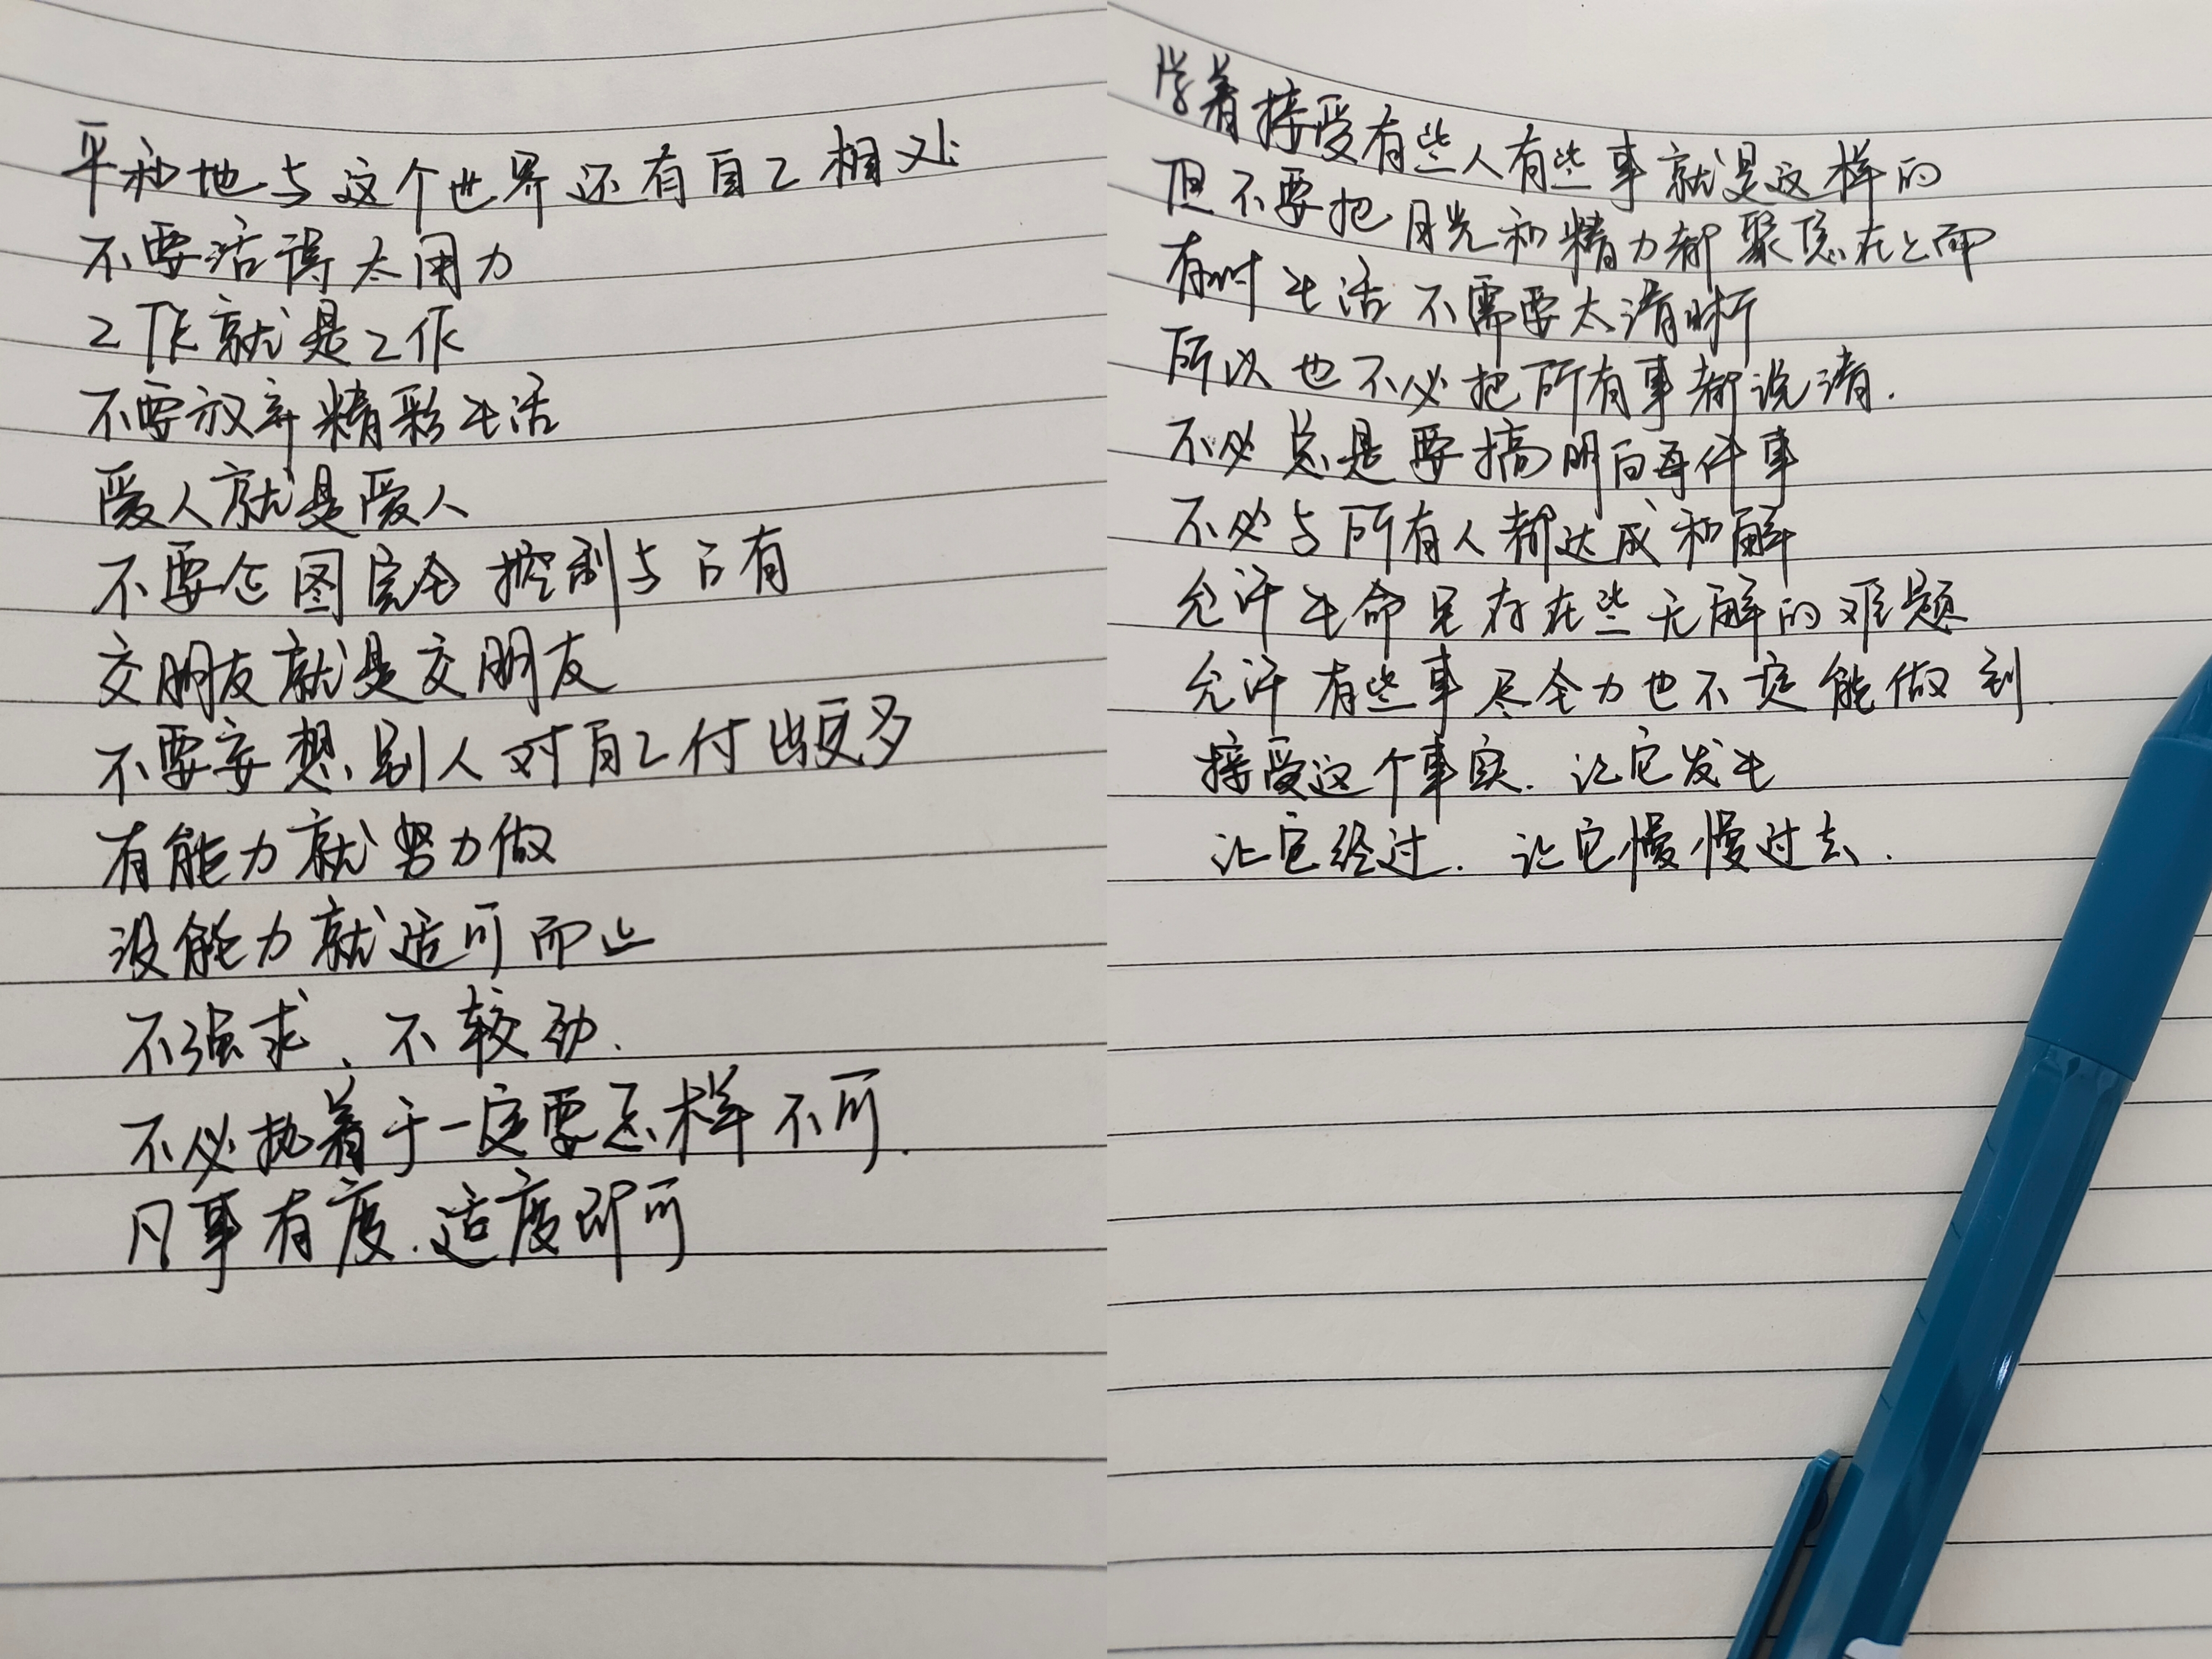 平和地与这个世界还有自己相处
不要活得太用力
工作就是工作
不要放弃精彩生活
爱人就是爱人
不要企图完全控制与占有
交朋友就是交朋友
不要妄想别人对自己付出更多
有能力就努力做
没能力就适可而止
不强求、不较劲.
不必执着于一定要怎样不可.
凡事有度.适度即可
学着接受有些人有些事就是这样的
但不要把目光和精力都聚焦在上面
有时生活不需要太清晰
所以也不必把所有事都说清.
不必总是要搞明白每件事
不必与所有人都达成和解
允许生命里存在些无解的难题
允许有些事尽全力也不一定能做到.
接受这个事实.让它发生
让它经过.让它慢慢过去.